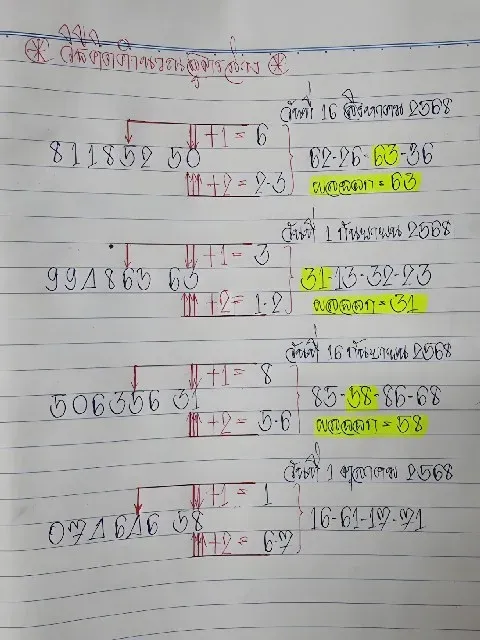 วิธีคิดคำนวณสูตรล่าง
วันที่ 16 สิงหาคม 2568
+1 = 6
811852 50
62-26-63-36
+2 = 2-3
ผลออก = 63
วันที่ 1 กันยายน 2568
+1 = 3
994863 63
31-13-32-23
+2 = 1-2
ผลออก = 31
วันที่ 16 กันยายน 2568
+1 = 8
506356 31
85-58-86-68
+2 = 5-6
ผลออก = 58
วันที่ 1 ตุลาคม 2568
+1 = 1
074646 58
16-61-17-71
+2 = 6-7